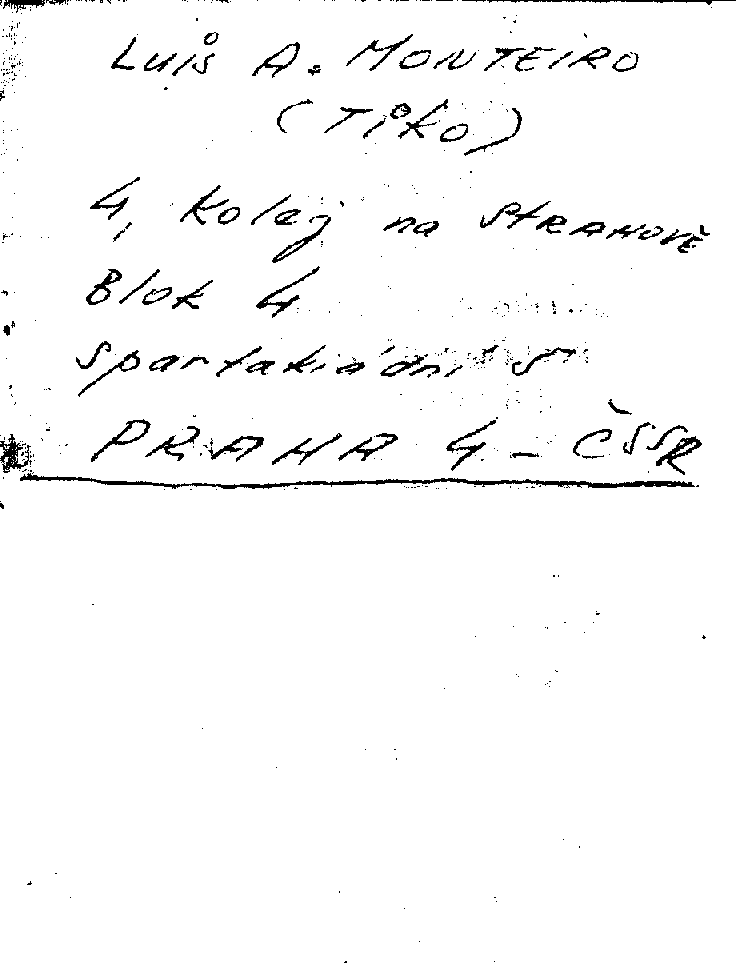 LUIS A. MONTEIRO
(TIKO)
4, Kolej na STRAHOVĚ
Blok 4
Spartakiádní 5
PRAHA 4 - ČSSR